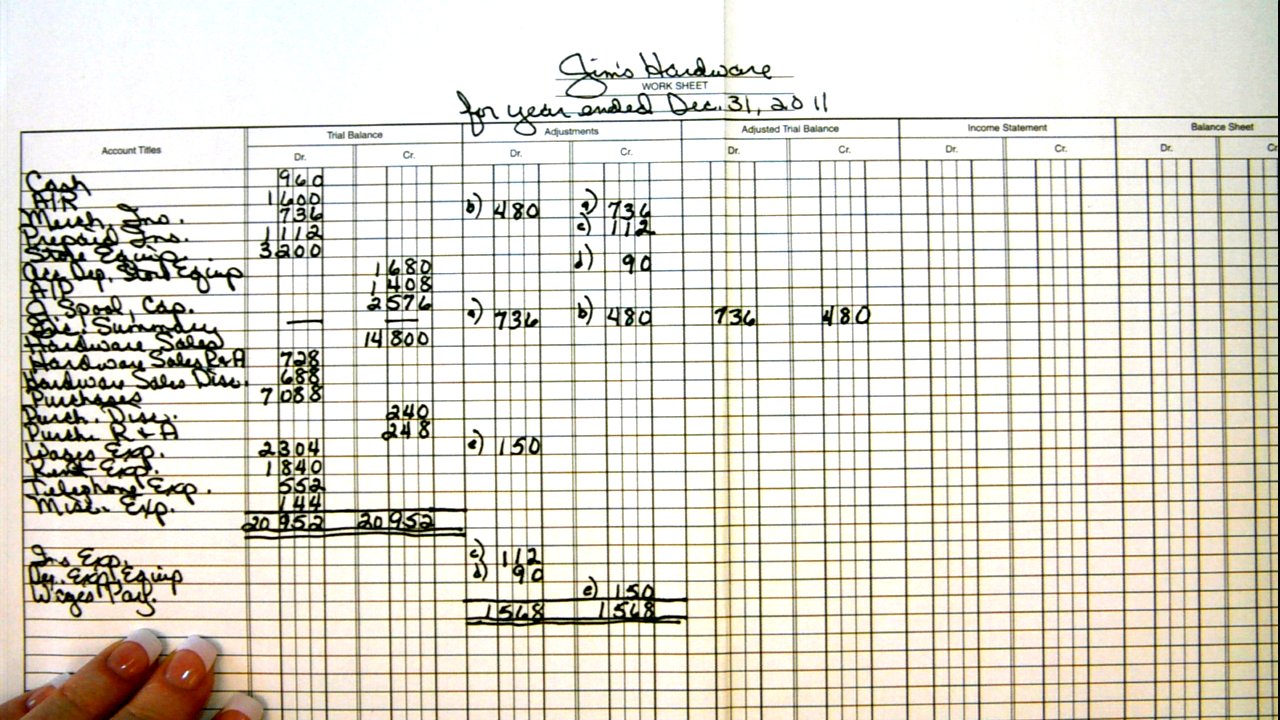 Jim's Hardware
WORK SHEET
for year ended Dec. 31, 2011
Account Titles Trial Balance Adjustments Adjusted Trial Balance Income Statement Balance Sheet
Dr. Cr. Dr. Cr. Dr. Cr. Dr. Cr. Dr. Cr
Cash 960
A/R 1600
Merch. Inv. 736 b) 480 a) 736
Prepaid Ins. 1112 c) 112
Store Equip. 3200
Acc. Dep. Store Equip 1680 d) 90
A/P 1408
J. Spool, Cap. 2576
Inc. Summary — — a) 736 b) 480 736 480
Hardware Sales 14800
Hardware Sales R+A 728
Hardware Sales Disc. 688
Purchases 7088
Purch. Disc. 240
Purch. R+A 248
Wages Exp. 2304 e) 150
Rent Exp. 1840
Telephone Exp. 552
Misc. Exp. 144
20952 20952
Ins Exp. c) 112
Dep. Exp Equip d) 90
Wages Pay. e) 150
1568 1568